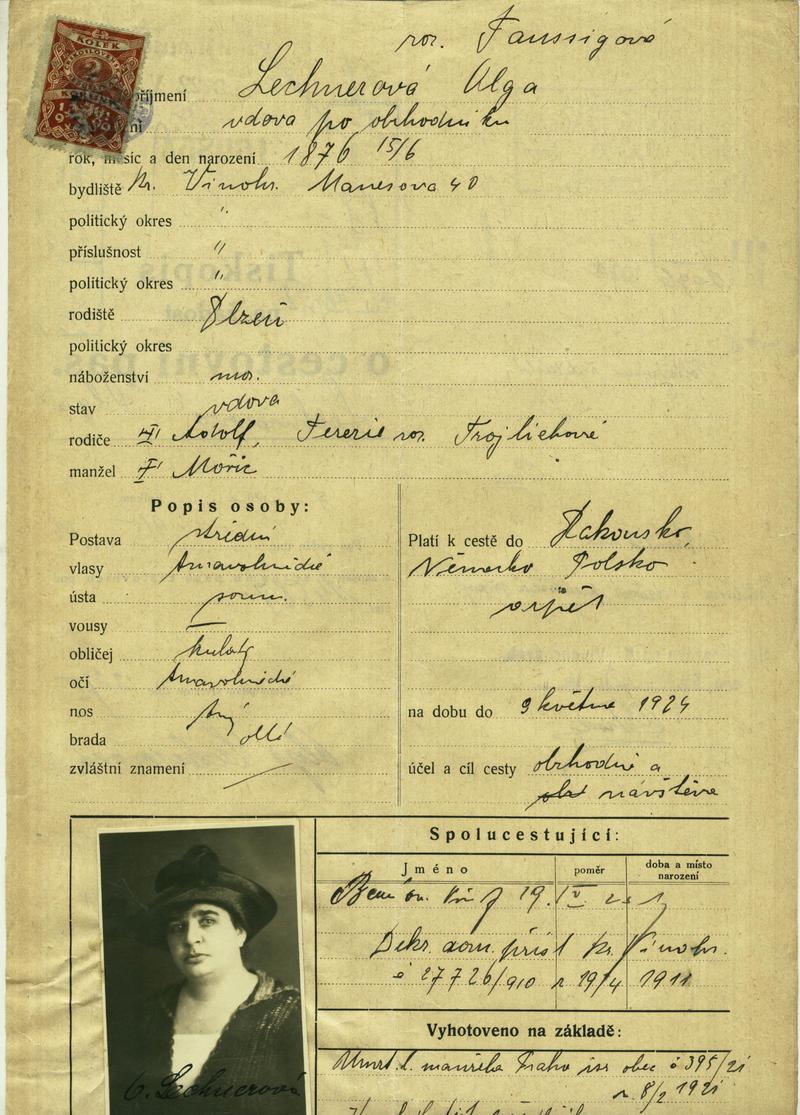 roz. Taussigová
KOLEK
2
příjmení Lechnerová Olga
vdova po obchodníku
rok, měsíc a den narození 1876 15/6
bydliště Kr. Vinohr. Manesova 40
politický okres "
příslušnost "
politický okres "
rodiště Plzeň
politický okres
náboženství moj.
stav vdova
rodiče Adolf, Terezie roz.
manžel Mořic
Popis osoby:
Postava střední
vlasy tmavohnědé
ústa soum.
vousy —
obličej kulatý
očí tmavohnědé
nos
brada
zvláštní znamení
Platí k cestě do Rakouska,
Německo Polsko
zpět
na dobu do 9 května 1924
účel a cíl cesty obchodní a
návštěva
Spolucestující:
Jméno
poměr
doba a místo
narození
19. IV
Dekr. dom. přísl Kr. Vinohr.
č 27726/910 z 19/4 1911
O. Lechnerová
Vyhotoveno na základě:
Úmrt. l. manžela Praha isr obec č 395/21
z. 8/2 1921